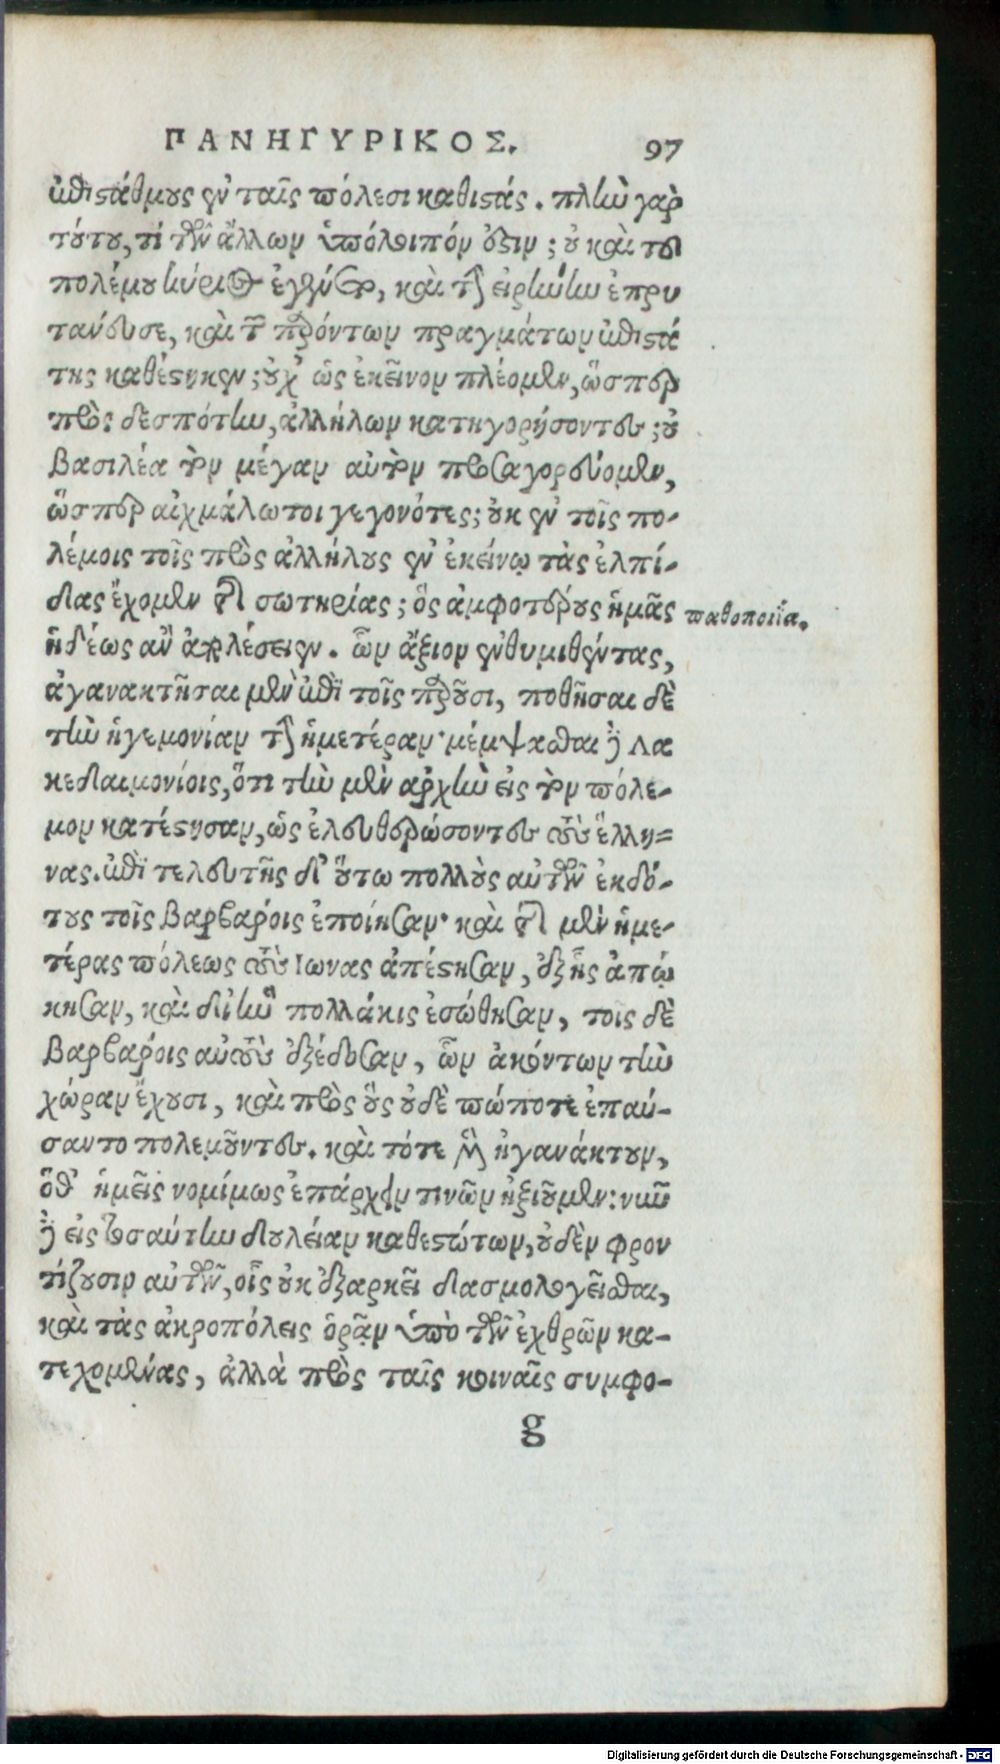 ΠΑΝΗΓΥΡΙΚΟΣ. 97
ἐπιστάθμους ἐν ταῖς πόλεσι καθιστάς. πλὴν γὰρ
τούτου, τί τῶν ἄλλων ὑπόλοιπόν ἐστιν; οὐ καὶ τοῦ
πολέμου κύριος ἐγένετο, καὶ τὴν εἰρήνην ἐπρυ
τάνευσε, καὶ τῶν παρόντων πραγμάτων ἐπιστά
της καθέστηκεν; οὐχ ὡς ἐκεῖνον πλέομεν, ὥσπερ
πρὸς δεσπότην, ἀλλήλων κατηγορήσοντες; οὐ
βασιλέα τὸν μέγαν αὐτὸν προσαγορεύομεν,
ὥσπερ αἰχμάλωτοι γεγονότες; οὐκ ἐν τοῖς πο-
λέμοις τοῖς πρὸς ἀλλήλους ἐν ἐκείνῳ τὰς ἐλπί-
δας ἔχομεν τῆς σωτηρίας; ὃς ἀμφοτέρους ἡμᾶς
παθοποιΐα.
ἡδέως ἂν ἀπολέσειεν. ὧν ἄξιον ἐνθυμηθέντας,
ἀγανακτῆσαι μὲν ἐπὶ τοῖς παροῦσι, ποθῆσαι δὲ
τὴν ἡγεμονίαν τὴν ἡμετέραν· μέμψασθαι δὲ Λα
κεδαιμονίοις, ὅτι τὴν μὲν ἀρχὴν εἰς τὸν πόλε-
μον κατέστησαν, ὡς ἐλευθερώσοντες τοὺς ἕλλη=
νας. ἐπὶ τελευτῆς δ' οὕτω πολλοὺς αὐτῶν ἐκδό-
τους τοῖς βαρβάροις ἐποίησαν· καὶ τῆς μὲν ἡμε-
τέρας πόλεως τοὺς Ιωνας ἀπέστησαν, ἐξ ἧς ἀπῴ
κησαν, καὶ δι' ἣν πολλάκις ἐσώθησαν, τοῖς δὲ
βαρβάροις αὐτοὺς ἐξέδοσαν, ὧν ἀκόντων τὴν
χώραν ἔχουσι, καὶ πρὸς οὓς οὐδὲ πώποτε ἐπαύ-
σαντο πολεμοῦντες. καὶ τότε μὲν ἠγανάκτουν,
ὅθ' ἡμεῖς νομίμως ἐπάρχειν τινῶν ἠξιοῦμεν: νῦν
δὲ εἰς τοσαύτην δουλείαν καθεστώτων, οὐδὲν φρον
τίζουσιν αὐτῶν, οἷς οὐκ ἐξαρκεῖ δασμολογεῖσθαι,
καὶ τὰς ἀκροπόλεις ὁρᾷν ὑπὸ τῶν ἐχθρῶν κα-
τεχομένας, ἀλλὰ πρὸς ταῖς κοιναῖς συμφο-
g
Digitalisierung gefördert durch die Deutsche Forschungsgemeinschaft - DFG